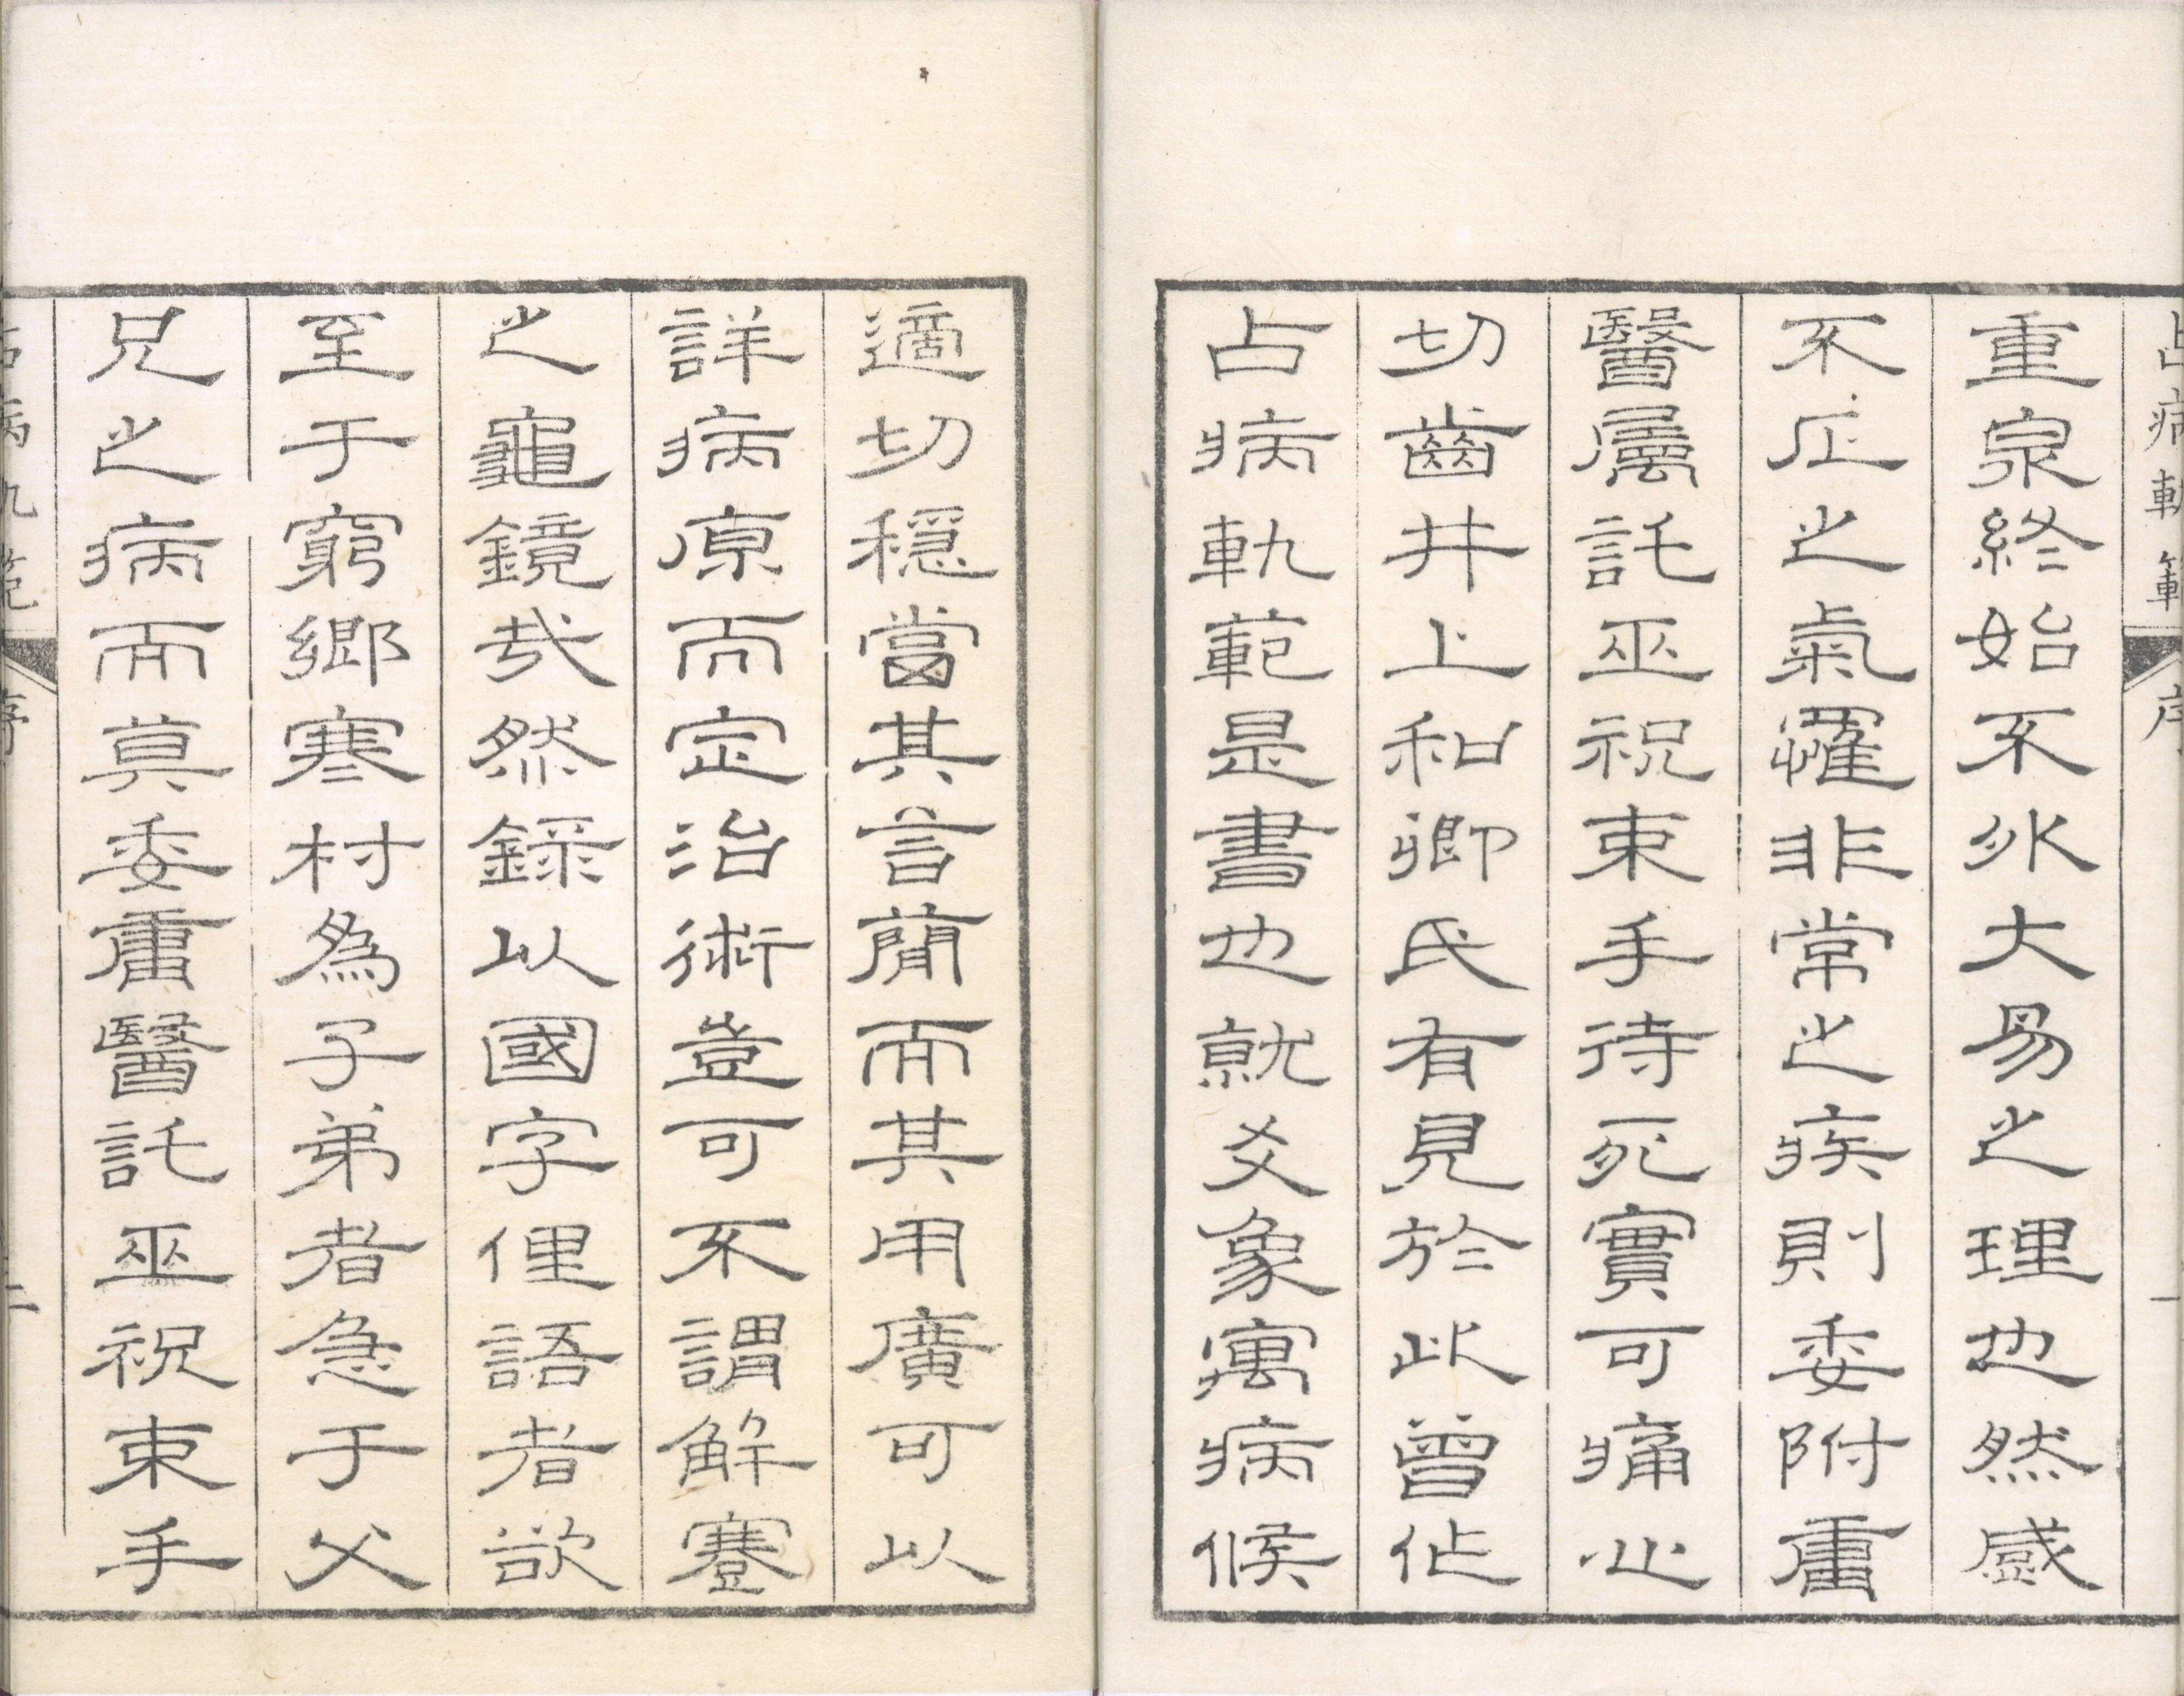 占病軌範 序 一
重泉終始不外大易之理也然感
不正之氣罹非常之疾則委附庸
醫屬託巫祝束手待死實可痛心
切齒井上和卿氏有見於此曾作
占病軌範是書也就爻象寓病候
適切穩當其言簡而其用廣可以
詳病原而定治術豈可不謂解蹇
之龜鏡哉然錄以國字俚語者欲
至于窮鄉寒村為子弟者急于父
兄之病而莫委庸醫託巫祝束手
占病軌範 序 二